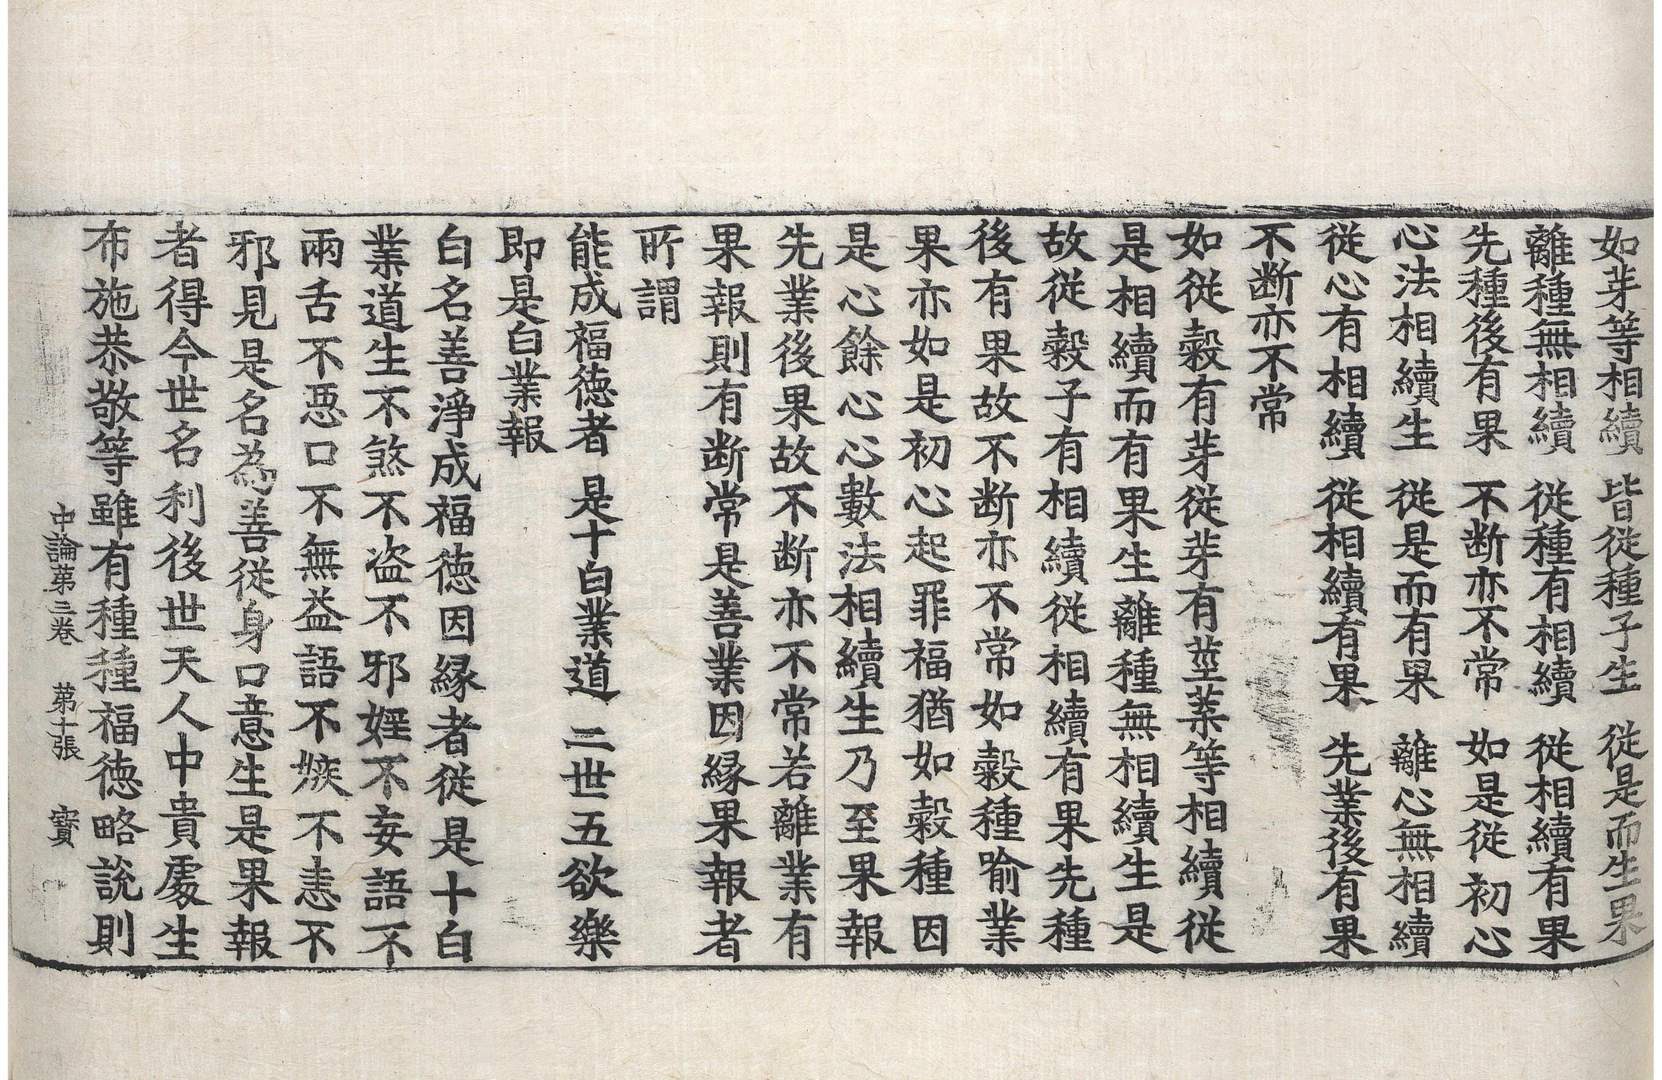 如芽等相續　皆従種子生　従是而生果
離種無相續　従種有相續　従相續有果
先種後有果　不断亦不常　如是従初心
心法相續生　従是而有果　離心無相續
従心有相續　従相續有果　先業後有果
不断亦不常
如従糓有芽従芽有莖葉等相續従
是相續而有果生離種無相續生是
故従糓子有相續従相續有果先種
後有果故不断亦不常如糓種喻業
果亦如是初心起罪福猶如糓種因
是心餘心心數法相續生乃至果報
先業後果故不断亦不常若離業有
果報則有断常是善業因縁果報者
所謂
能成福徳者　是十白業道　二世五欲樂
即是白業報
白名善淨成福徳因縁者従是十白
業道生不煞不盗不邪婬不妄語不
兩舌不惡口不無益語不嫉不恚不
邪見是名為善従身口意生是果報
者得今世名利後世天人中貴處生
布施恭敬等雖有種種福徳略說則
中論第三卷　第十張　寳